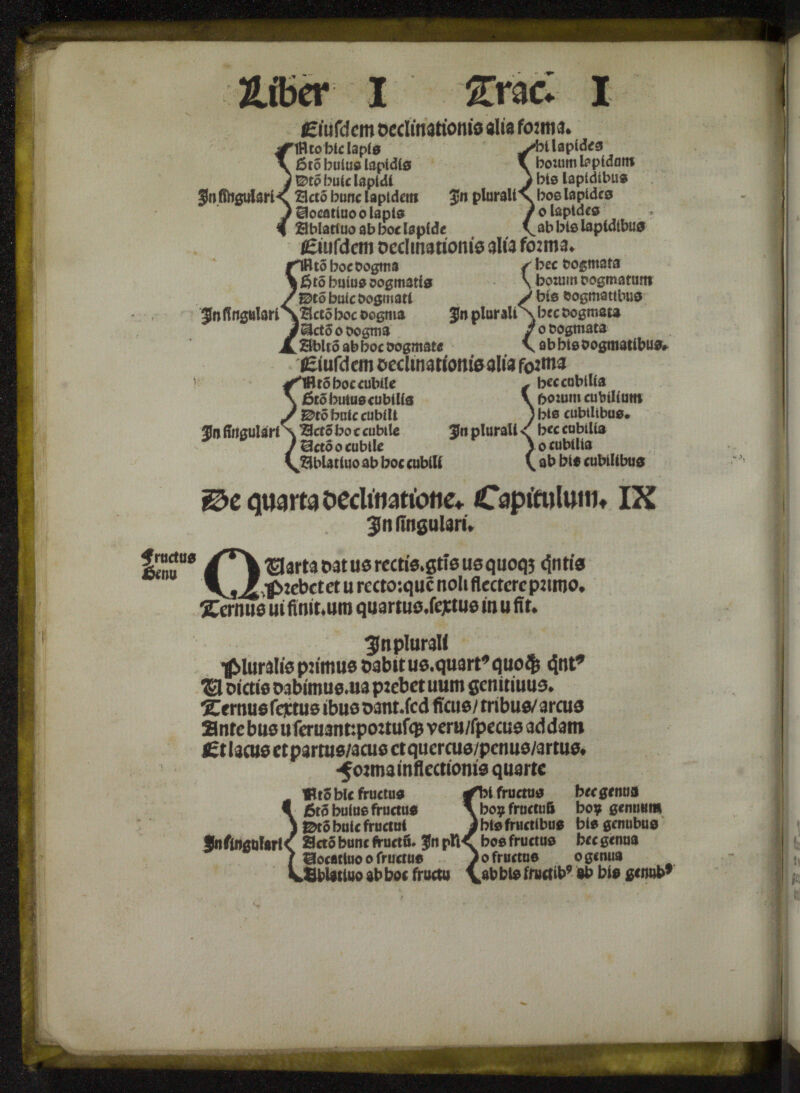 Liber I Trac. I
Eiusdem declinationis alia forma.
Nto hic lapis hi lapides
Gtõ huius lapidis horum lapidum
Dtõ huic lapidi his lapidibus
In singulari Actõ hunc lapidem In plurali hos lapides
Vocatiuo o lapis o lapides
Ablatiuo ab hoc lapide ab his lapidibus
Eiusdem declinationis alia forma.
Ntõ hoc dogma hec dogmata
Gtõ huius dogmatis horum dogmatum
Dtõ huic dogmati his dogmatibus
In singulari Actõ hoc dogma In plurali hec dogmata
Vctõ o dogma o dogmata
Abltõ ab hoc dogmate ab his dogmatibus.
Eiusdem declinationis alia forma
Ntõ hoc cubile hec cubilia
Gtõ huius cubilis horum cubilium
Dtõ huic cubili his cubilibus.
In singulari Actõ hoc cubile In plurali hec cubilia
Vctõ o cubile o cubilia
Ablatiuo ab hoc cubili ab his cubilibus
De quarta declinatione. Capitulum. IX
In singulari.
Fructus
Genu
QVarta dat us rectis.gtis us quoqʒ q̃ntis
Prebet et u recto:quē noli flectere primo.
Ternus ui finit.um quartus.sextus in u fit.
In plurali
Pluralis primus dabit us.quartꝰ quoqʒ q̃ntꝰ
U dictis dabimus.ua prebet uum genitiuus.
Ternus sextus ibus dant.sed ficus/ tribus/ arcus
Ante bus u seruant:portusqʒ veru/specus addam
Et lacus et partus/acus et quercus/penus/artus.
Forma inflectionis quarte
Ntõ hic fructus hi fructus hec genua
Gtõ huius fructus hoꝝ fructuū hoꝝ genuum
Dtõ huic fructui his fructibus his genubus
In singulari Actõ hunc fructū. In pĺi hos fructus hec genua
Vocatiuo o fructus o fructus o genua
Ablatiuo ab hoc fructu ab his fructibꝰ ab his genubꝰ